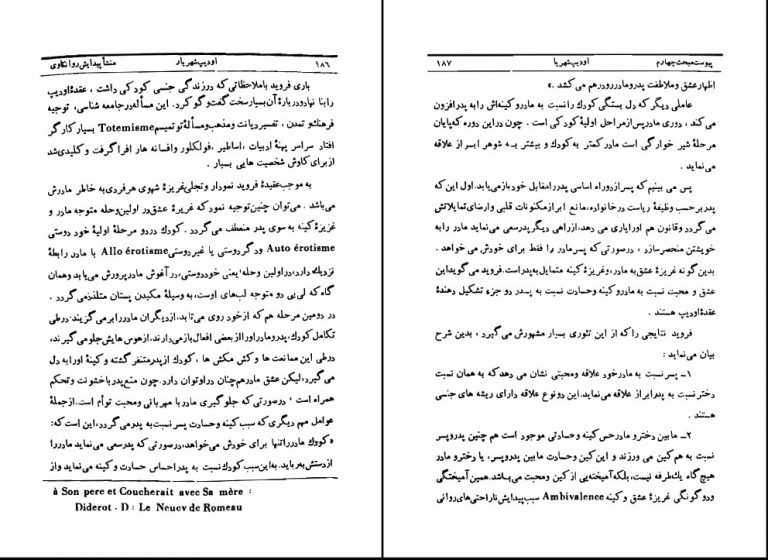 ۱۸۶ اودیپ شهریار منشأ پیدایش روانکاوی
باری فروید باملاحظاتی که درزندگی جنسی کودکی داشت ، عقدهٔ اودیپ
رابنا نهاد ودربارهٔ آن بسیار سخت گفت و گو کرد. این مسأله در جامعه شناسی، توجیه
فرهنگ و تمدن ، تفسیر دیانت و مذهب و مسألهٔ توتمیسم Totemisme بسیار کارگر
افتاد. سراسر پهنهٔ ادبیات ، اساطیر ،فولکلور وافسانه هار افرا گرفت و کلیدی شد
از برای کاوش شخصیت هایی بسیار .
به موجب عقیدهٔ فروید نمودار و تجلی غریزهٔ شهوی هر فردی به خاطر مادرش
می‌باشد . می‌توان چنین توجیه نمود که غریزهٔ عشق در اولین وحله متوجه مادر و
غریزهٔ کینه به سوی پدر منعطف می‌گردد . کودک در دو مرحلهٔ اولیهٔ خود دوستی
Auto érotisme ودگر دوستی یا غیر دوستی Allo érotisme با مادر رابطهٔ
نزدیک دارد، در اولین وحله ٬یعنی خود دوستی، در آغوش مادر پرورش می‌یابد وهمان
گاه که لی بی دو متوجه لب‌های اوست، به وسیلهٔ مکیدن پستان متلذذ می گردد .
در دومین مرحله هم که از خود روی می‌تابد، از دیگران مادر را بر می گزیند . در طی
تکامل کودک، پدر و مادر او را از بعضی افعال باز می‌دارند. از هوس هایش جلو می گیرند،
در طی این ممانعت ها و کش مکش ها ، کودک از پدر متنفر گشته و کینهٔ او را به دل
می گیرد، لیکن عشق مادر هم چنان در او توان دارد. چون منع پدر با خشونت و تحکم
همراه است ٬ در صورتی که جلو گیری مادر با مهربانی ومحبت توأم است . از جملهٔ
عوامل مهم دیگری که سبب کینه و حسادت پسر نسبت به پدر می گردد، این است که :
«کودک مادر را تنها برای خودش می‌خواهد، در صورتی که پدر سعی می نماید مادر را
از دستش به رباید . به این سبب کودک نسبت به پدر احساس حسادت و کینه می نماید و از
à Son pere et Coucherait avec Sa mère :
Diderot . D : Le Neuev de Romeau
پیوست مبحث چهارم اودیپ شهریا ۱۸۷
اظهار عشق وملاطفت پدر ومادر رودرهم می کشد .»
عاملی دیگر که دل بستگی کودک را نسبت به مادر و کینه‌اش را به پدر افزون
می کند ، دوری مادر پس از مراحل اولیهٔ کودکی است . چون در این دوره که پایان
مرحلهٔ شیر خوارگی است مادر کمتر به کودک و بیشتر به شوهر ابراز علاقه
می نماید .
پس می بینیم که پسر از دو راه اساسی پدر را مقابل خود باز می‌یابد. اول این که
پدر بر حسب وظیفهٔ ریاست در خانواده، مانع ابراز مکنونات قلبی و ارضای تمایلاتش
می گردد وقانون هم او رایاری می دهد، از راهی دیگر پدر سعی می نماید مادر را به
خویشتن منحصر سازد . در صورتی که پسر مادر را فقط برای خودش می خواهد .
بدین گونه غریزهٔ عشق به مادر، وغریزهٔ کینه متمایل به پدر است . فروید می گوید این
عشق و محبت نسبت به مادر و کینه وحسادت نسبت به پدر دو جزء تشکیل دهندهٔ
عقدهٔ اودیپ هستند .
فروید نتایجی را که از این تئوری بسیار مشهورش می گیرد ، بدین شرح
بیان می نماید :
۱ــ پسر نسبت به مادر خود علاقه ومحبتی نشان می دهد که به همان نسبت
دختر نسبت به پدر ابراز علاقه می نماید . این دو نوع علاقه دارای ریشه های جنسی
هستند .
۲ــ مابین دختر و مادر حس کینه و حسادتی موجود است هم چنین پدر وپسر
نسبت به هم کین می ورزند و این کین و حسادت مابین پدر وپسر، یا دختر و مادر
هیچ گاه یک طرفه نیست ، بلکه آمیخته یی از کین ومحبت می باشد . همین آمیختگی
و دو گونگی غریزهٔ عشق و کینه Ambivalence سبب پیدایش ناراحتی‌های روانی